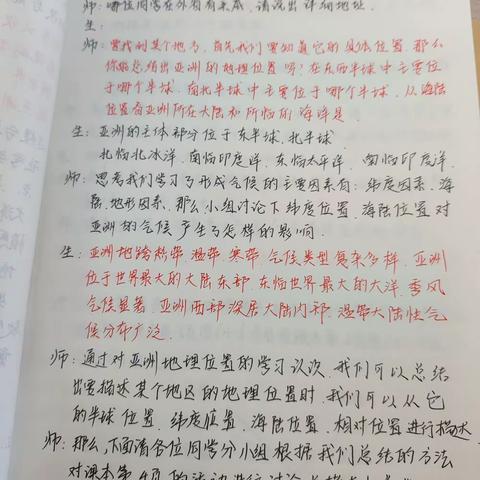 师：哪位同学在外有有亲戚，请说出详细地址.
生：
师：要找到某个地方，首先我们要知道它的具体位置.那么
你能总结出亚洲的地理位置吗？在东西半球中主要位
于哪个半球.南北半球中主要位于哪个半球.从海陆
位置看亚洲所在大陆和所临的海洋是
生：亚洲的主体部分位于东半球.北半球
北临北冰洋.南临印度洋.东临太平洋.南临印度洋.
师：思考我们学习了形成气候的主要因素有：纬度因素.海
陆.地形因素.那么小组讨论下纬度位置.海陆位置对
亚洲的气候产生了怎样的影响.
生：亚洲地跨热带.温带.寒带.气候类型复杂多样.亚洲
位于世界最大的大陆东部.东临世界最大的大洋.季风
气候显著.亚洲西部深居大陆内部.温带大陆性气
候分布广泛.
师：通过对亚洲地理位置的学习认识.我们可以总结
出要描述某个地区的地理位置时.我们可以从它
的半球位置.纬度位置.海陆位置.相对位置进行描述.
师：那么，下面请各位同学分小组根据我们总结的方法
对课本第4页的活动进行讨论